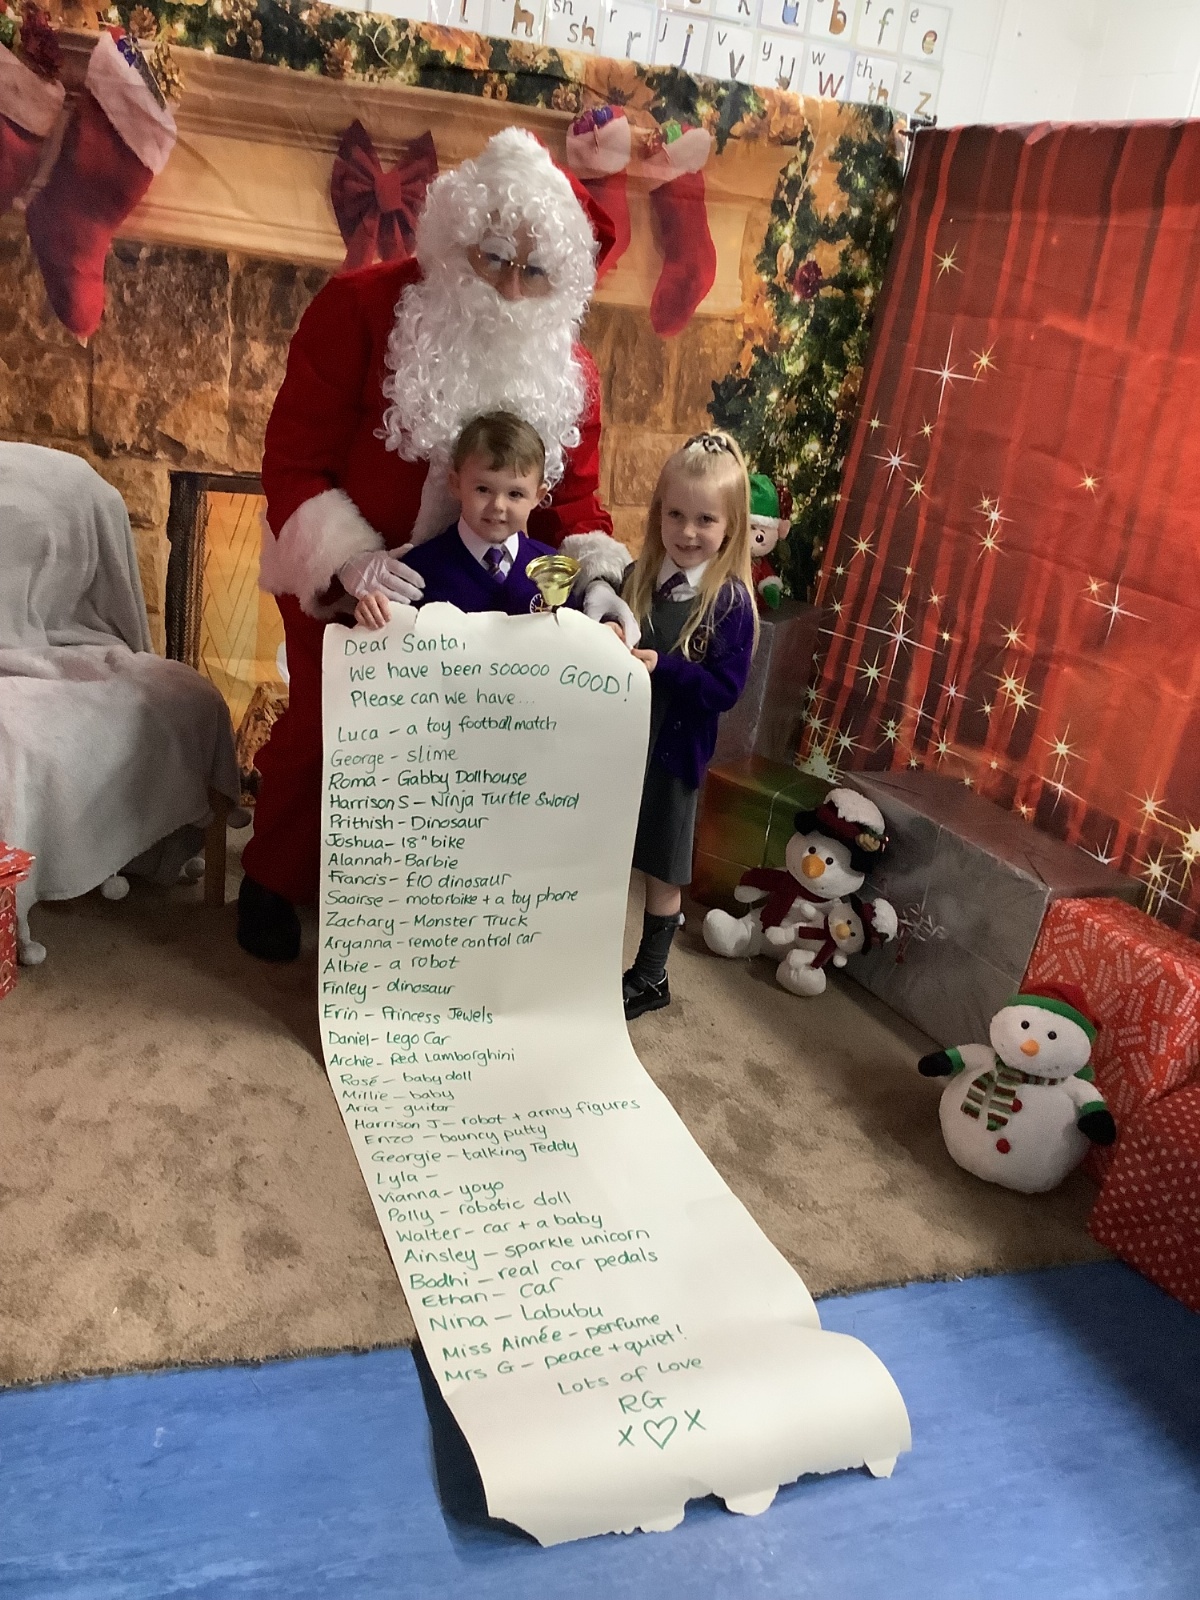 sh
h
sh
r
r
j
j
v
v
y
y
u
w
w
b
f
f
e
e
th
th
z
z
Dear Santa,
We have been sooooo GOOD!
Please can we have...
Luca - a toy football match
George - slime
Roma - Gabby Dollhouse
Harrison S - Ninja Turtle Sword
Prithish - Dinosaur
Joshua - 18" bike
Alannah - Barbie
Francis - £10 dinosaur
Saoirse - motorbike + a toy phone
Zachary - Monster Truck
Aryanna - remote control car
Albie - a robot
Finley - dinosaur
Erin - Princess Jewels
Daniel - Lego Car
Archie - Red Lamborghini
Rosé - baby doll
Millie - baby
Aria - guitar
Harrison J - robot + army figures
Enzo - bouncy putty
Georgie - talking Teddy
Lyla -
Vianna - yoyo
Polly - robotic doll
Walter - car + a baby
Ainsley - sparkle unicorn
Bodhi - real car pedals
Ethan - car
Nina - Labubu
Miss Aimée - perfume
Mrs G - peace + quiet!
Lots of Love
RG
X ♡ X
SPECIAL DELIVERY